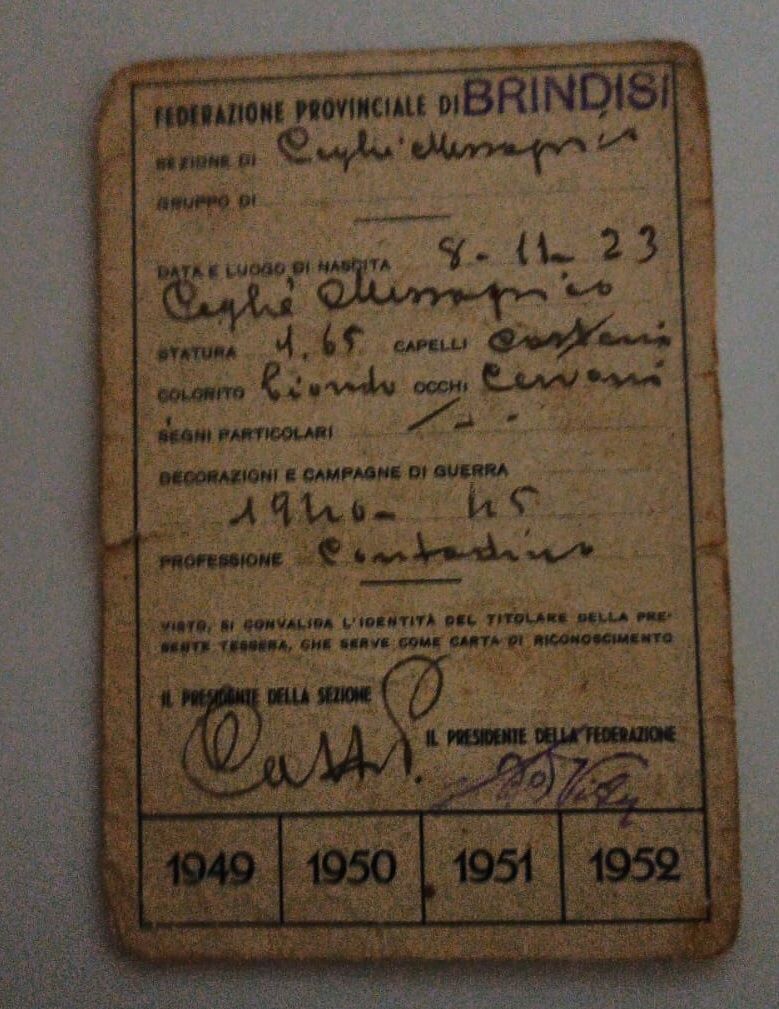 FEDERAZIONE PROVINCIALE DI BRINDISI
SEZIONE DI Ceglie Messapico
GRUPPO DI
DATA E LUOGO DI NASCITA 8-11-23
Ceglie Messapico
STATURA 1,65 CAPELLI Castani
COLORITO biondo OCCHI Cervoni
SEGNI PARTICOLARI /
DECORAZIONI E CAMPAGNE DI GUERRA
1940-45
PROFESSIONE Contadino
VISTO, SI CONVALIDA L'IDENTITÀ DEL TITOLARE DELLA PRE-
SENTE TESSERA, CHE SERVE COME CARTA DI RICONOSCIMENTO
IL PRESIDENTE DELLA SEZIONE
IL PRESIDENTE DELLA FEDERAZIONE
1949 1950 1951 1952